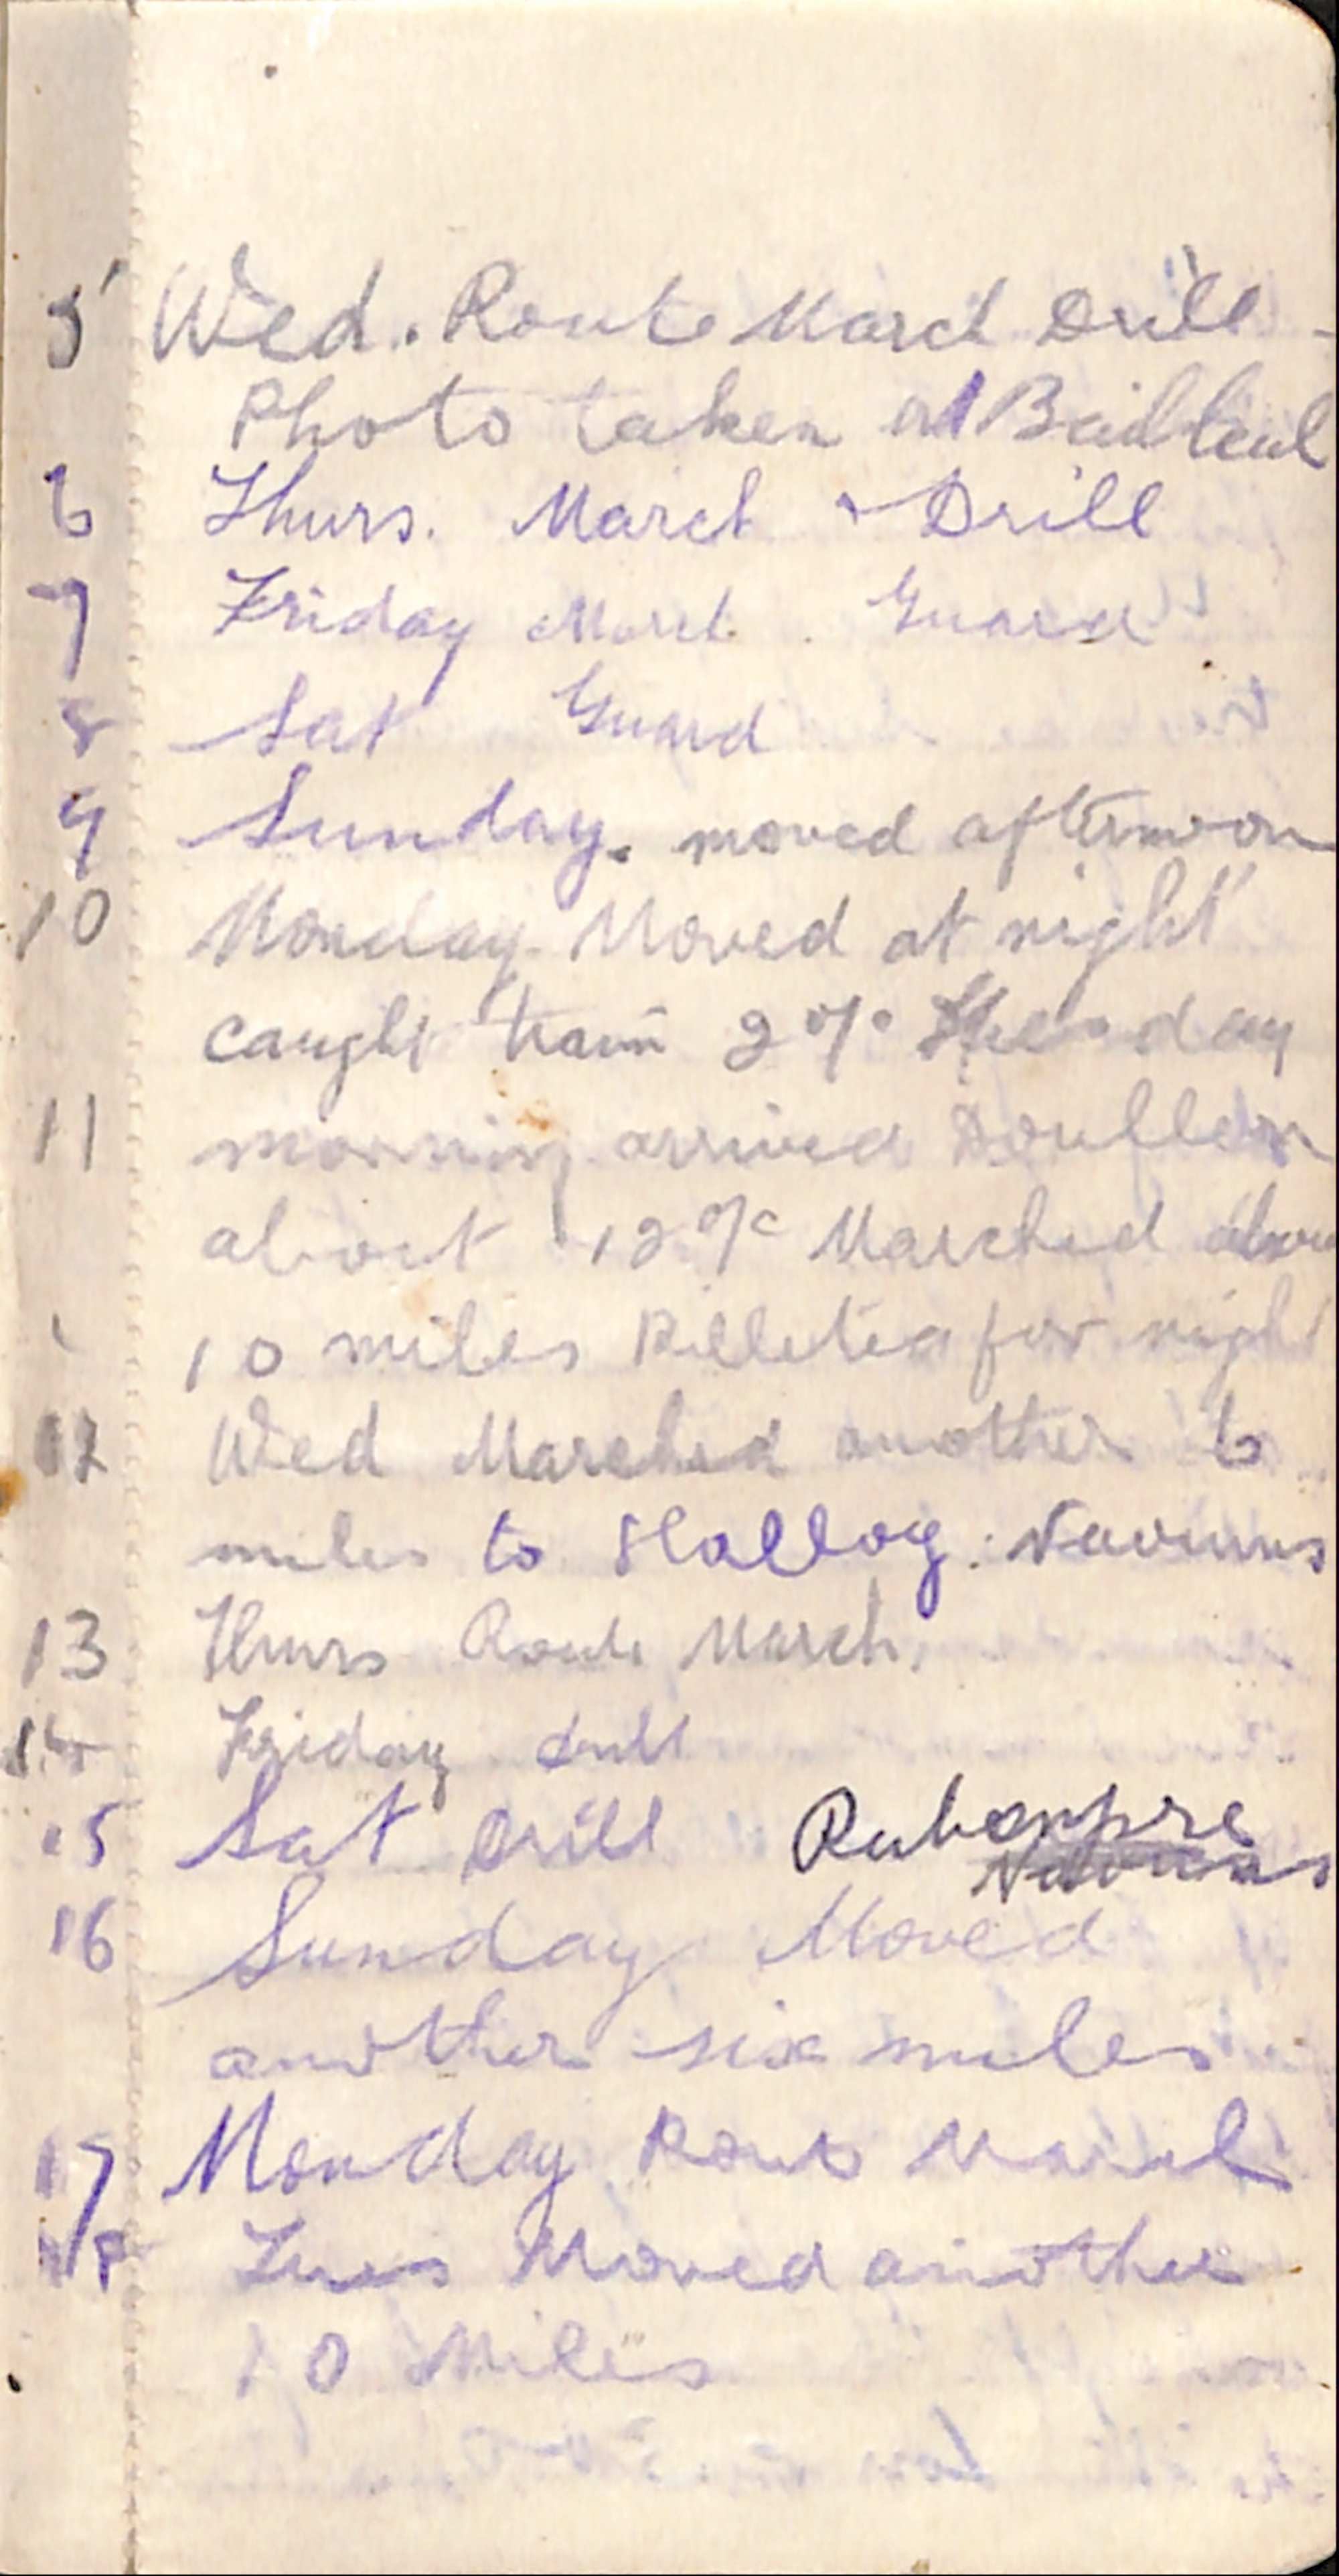 5 Wed. Route March Drill -
Photo taken at Bailleul
6 Thurs. March & Drill
7 Friday March. Guard
8 Sat Guard
9 Sunday. moved afternoon
10 Monday Moved at night
caught train 2 o/c Tuesday
11 morning arrived Doullen
about 12 o/c Marched abou
10 miles Billeted for night
12 Wed Marched another 6
miles to Halloy: Navours
13 Thurs Route March.
14 Friday drill
15 Sat Drill Rubempre
16 Sunday Moved
another six miles
17 Monday Route March
18 Tues Moved another
10 Miles